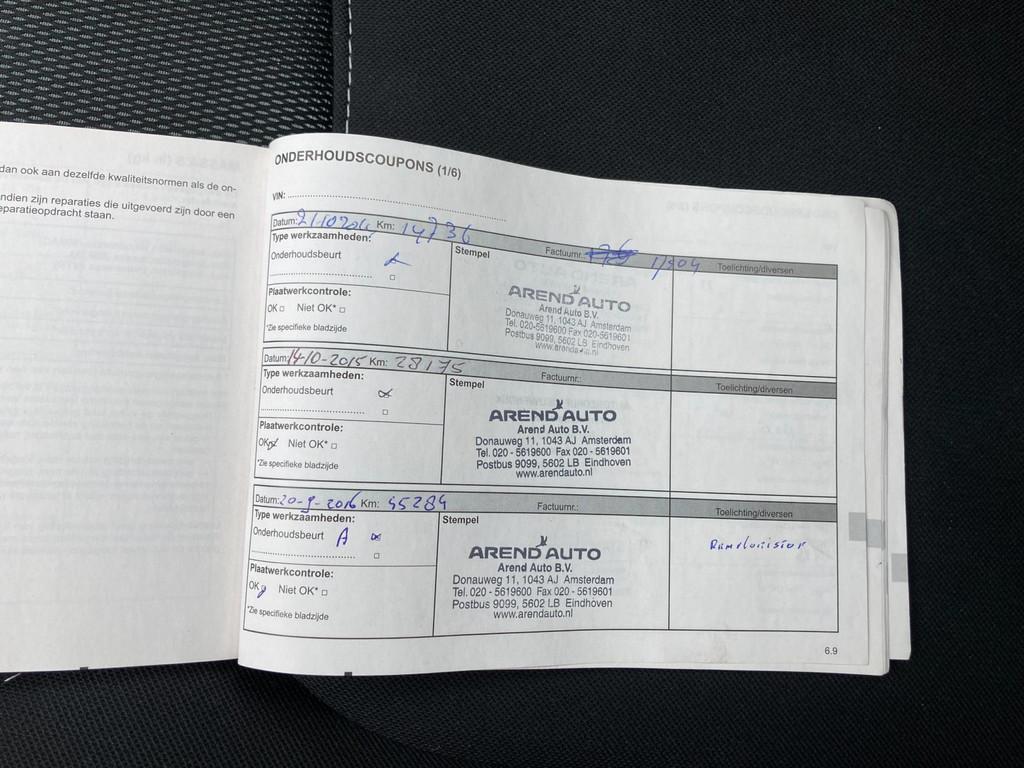 dan ook aan dezelfde kwaliteitsnormen als de on-
ndien zijn reparaties die uitgevoerd zijn door een
eparatieopdracht staan.
ONDERHOUDSCOUPONS (1/6)
VIN:
Datum: Km: 14736 Factuurnr. Toelichting/diversen
Type werkzaamheden:
Stempel
Onderhoudsbeurt A
Plaatwerkcontrole:
OK □ Niet OK* □
*Zie specifieke bladzijde
AREND AUTO
Arend Auto B.V.
Donauweg 11, 1043 AJ Amsterdam
Tel. 020-5619600 Fax 020-5619601
Postbus 9099, 5602 LB Eindhoven
www.arendauto.nl
Datum: 14-10-2015 Km: 28175 Factuurnr.: Toelichting/diversen
Type werkzaamheden:
Stempel
Onderhoudsbeurt
Plaatwerkcontrole:
OK Niet OK* □
*Zie specifieke bladzijde
AREND AUTO
Arend Auto B.V.
Donauweg 11, 1043 AJ Amsterdam
Tel. 020 - 5619600 Fax 020 - 5619601
Postbus 9099, 5602 LB Eindhoven
www.arendauto.nl
Datum: 20-9-2016 Km: 45284 Factuurnr.: Toelichting/diversen
Type werkzaamheden:
Stempel
Onderhoudsbeurt A
Plaatwerkcontrole:
OK Niet OK* □
*Zie specifieke bladzijde
AREND AUTO
Arend Auto B.V.
Donauweg 11, 1043 AJ Amsterdam
Tel. 020 - 5619600 Fax 020 - 5619601
Postbus 9099, 5602 LB Eindhoven
www.arendauto.nl
6.9